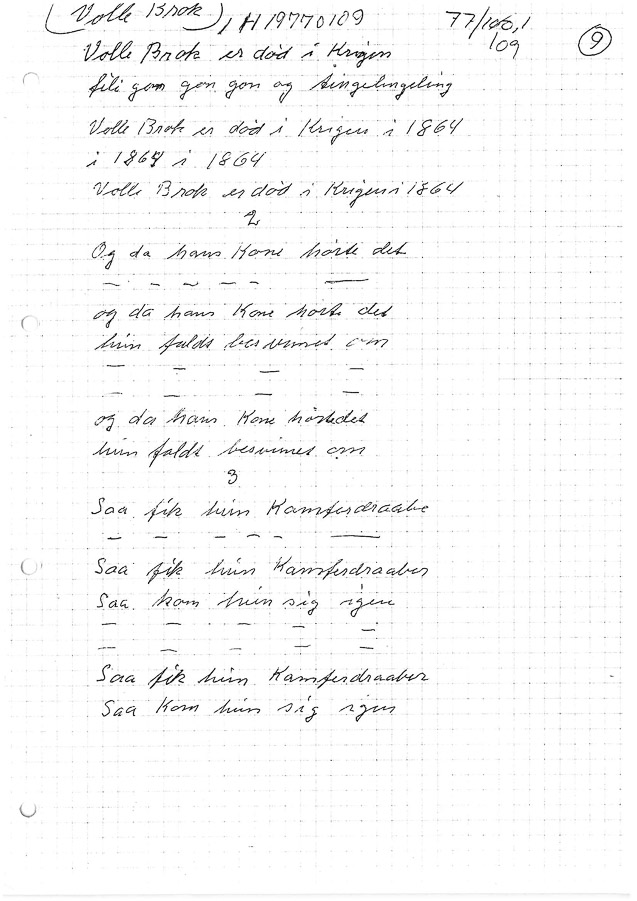 (Volle Brok), H 19770109 77/100,1 /09 9
Volle Brok er död i Krigen
fili gom gon gon og tingelingeling
Volle Brok er död i Krigen i 1864
i 1864 i 1864
Volle Brok er död i Krigen i 1864
2
Og da hans Kone hörte det
— — — — — —
og da hans Kone hörte det
hun faldt besvimet om
— — — —
— — — —
og da hans Kone hörte det
hun faldt besvimet om
3
Saa fik hun Kamferdraabe
— — — — — —
Saa fik hun Kamferdraaber
Saa kom hun sig igen
— — — — —
— — — — —
Saa fik hun Kamferdraaber
Saa Kom hun sig igen